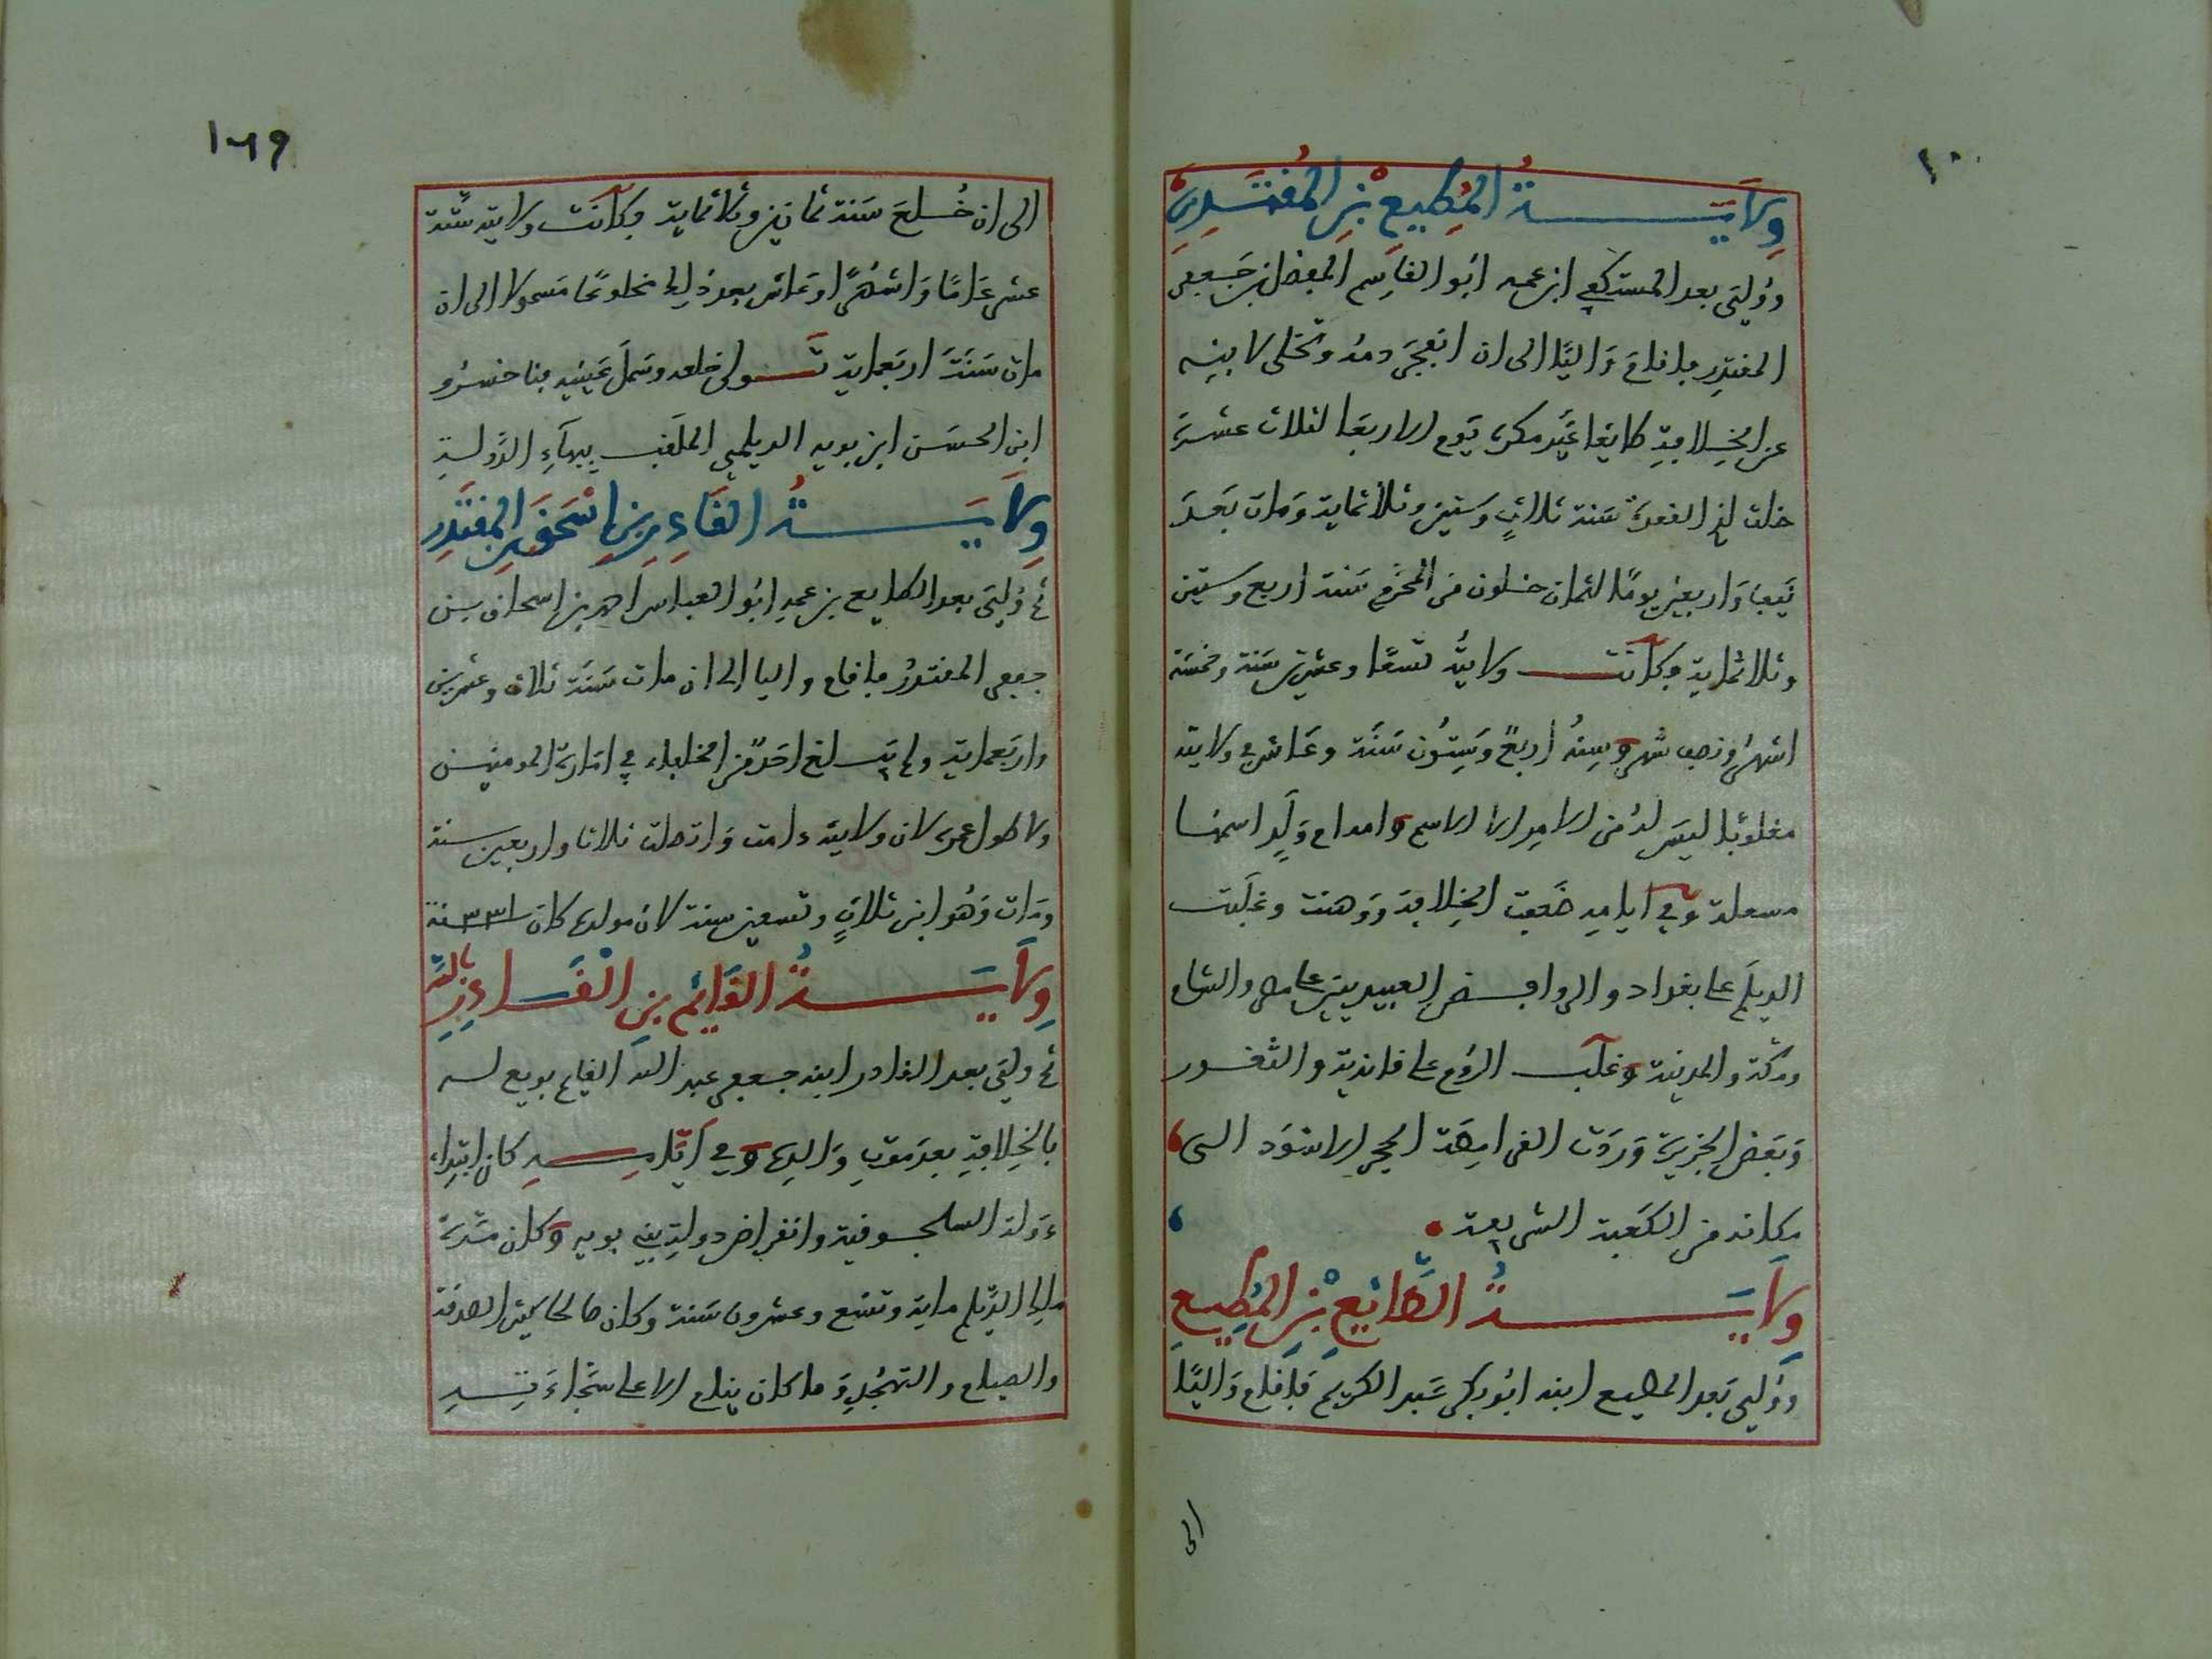 وِلَايَـــــةُ المُطِيعِ بْنِ المُقْتَدِرِ
ووُلِيَ بعد المستكفي ابن عمه ابُو القاسِم المفضل بن جَعفر
المقتدِر فاقامَ وَاليًا الى ان انفجرَ دمهُ وتخلى لابنِه
عن الخِلافةِ طايعًا غيرَ مكره يَوم الاربعَا لثلاث عشرَة
خلت لذي القعدة سَنة ثلاثٍ وسَتين وثلاثماية وَمات بَعدَ
نَيفا وَاربعين يومًا لثمان خلون من المحرَم سَنة اربع وستين
وثلاثماية وكانت ولايتُه تسعًا وعشرين سَنة وخمسَة
اشهرُ ونصف شهر وسِنهُ اربعٌ وَسِتُون سَنَة وعَاش في ولايته
مغلوبًا ليسَ لهُ من الامر الا الاسم
وفي ايامه ضَعفت الخِلافة وَوَهنت وغلَبت
الديلَم على بغداد والروافـض العبيديين على مصر والشام
ومكة والمدينة وغلب الرُوم على والثغـور
وَبَعض الجزيرَة وَرَدَت القرامِطَة الحجر الاسْوَد الى
مكانه من الكَعبة الشريفة
وِلَايَـــــةُ الطَّائِعِ بْنِ المُطِيعِ
ووُلي بَعد المطيع ابنه ابُو بكر عَبد الكريم فَاقام وَاليًا
الى
١٦٩
الى ان خُـلعَ سَنة ثمانين وثلاثماية وكانت ولايته ستة
عشر عَامًا وَاشهُرًا وعَاش بعد ذلك مخلوعًا مَسمولا الى ان
مات سَنَة اربعماية تـولى خلعه وسَملَ عَينيه فناخسرُو
ابن الحسَن ابن بويه الديلمي الملقب ببهَاءِ الدَّولـةِ
وِلَايَـــــةُ القَادِرِ بْنِ إسْحَق بن المقتَدِر
ثم وُلِيَ بعد الطايع بن عمهِ ابُو العباس احمد بن اسحاق بـن
جعفر المقتدرُ فاقام واليا الى ان مات سَنَة ثلاث وعشرين
واربَعماية ولم يَبـلغ احَدٌ من الخلفاء في امَارة المومنيـن
ولا طول عمره لان ولايته دامت وَاتصلت ثلاثا واربعين سنة
ومَات وَهُو ابن ثلاثٍ وتسعين سنة لان مولده كان ٣٣١ سنة
وِلَايَـــــةُ القَائِم بِنِ القَـادِرِ بالله
ثم ولِيَ بعد القادر ابنه جعفر عبد الله القايم بويع لـه
بالخِلافةِ بعدَ مَوتِ وَالدِه وفي ايَامـه كان ابتداء
دَولة السلجـوقية وانقراض دولةِ بني بويه وكان مُدة
ملك الدَّيلم ماية وتسْع وعشرون سَنة وكان صالحا كثير الصدقة
والصيام والتهجُدِ وَما كان ينام الا على سَجَّادَتِــهِ